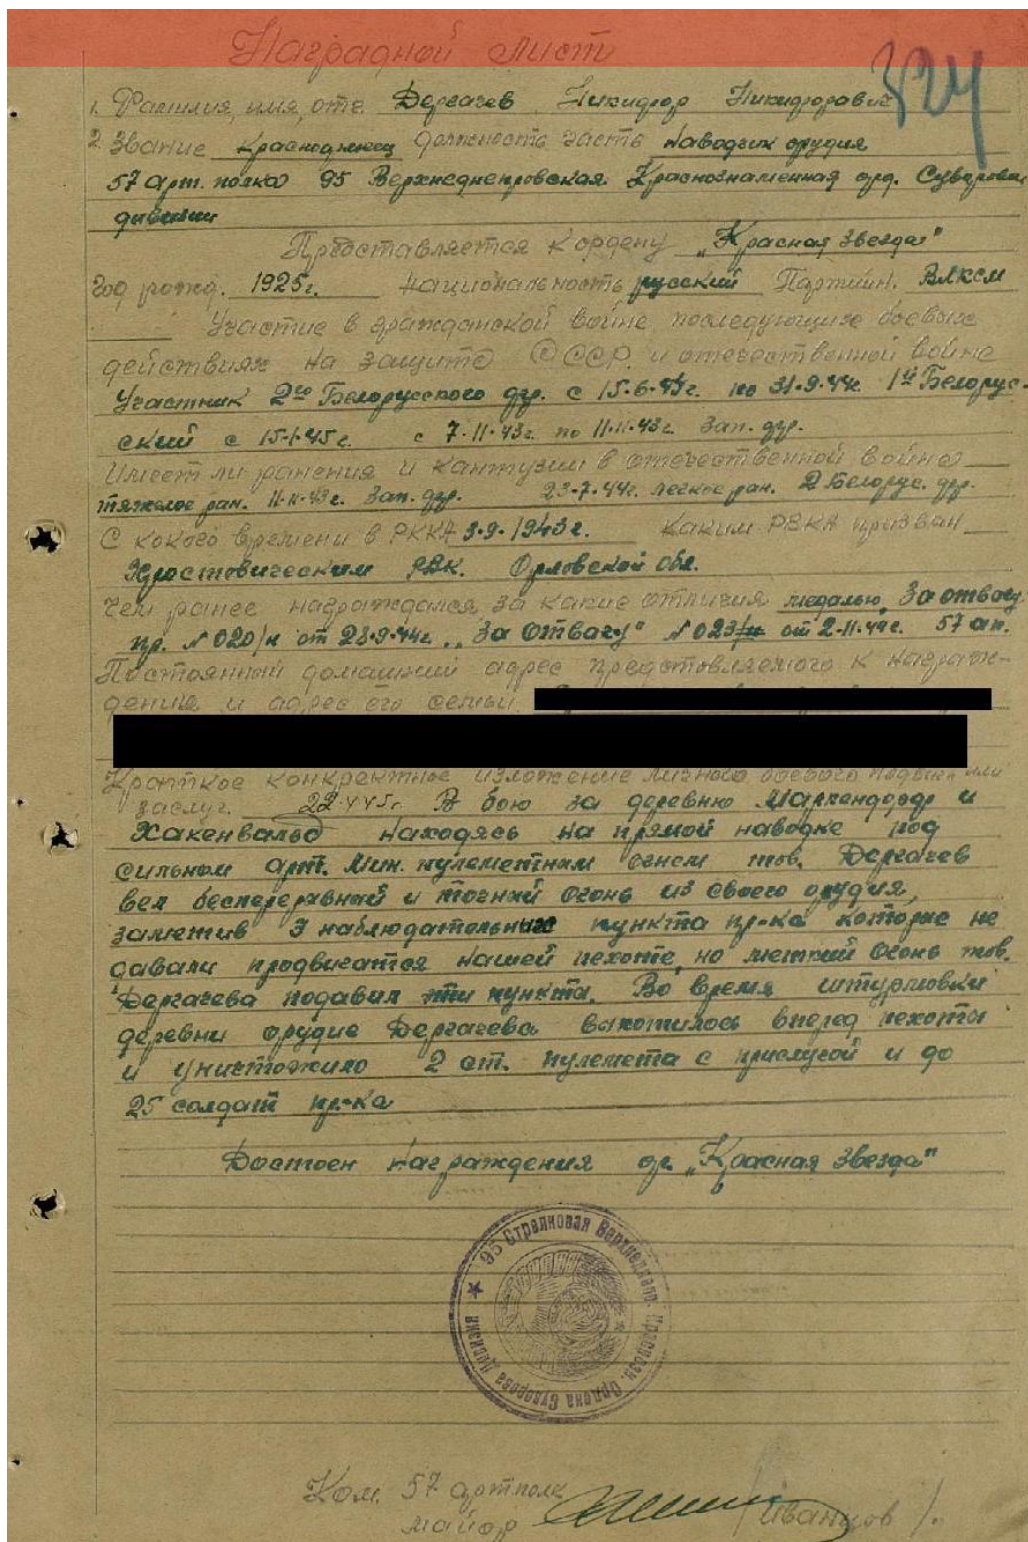 Наградной лист
324
1. Фамилия, имя, отч. Дергачев Никифор Никифорович
2. Звание красноармеец должность часть наводчик орудия
57 арт. полка 95 Верхнеднепровская Краснознаменная орд. Суворова
дивизии
Предоставляется к ордену „Красная Звезда"
Год рожд. 1925г. Национальность русский Партийн. ВЛКСМ
Участие в гражданской войне, последующих боевых
действиях на защите СССР и отечественной войне
Участник 2го Белорусского фр. с 15.6.44г. по 31.9.44г. 1й Белорус-
ский с 15.1.45г. с 7.11.43г. по 11.11.43г. Зап. фр.
Имеет ли ранения и кантузии в отечественной войне
тяжелое ран. 11.11.43г. Зап. фр. 23.7.44г. легкое ран. 2 Белорус. фр.
С кокого времени в РККА 3.9.1943г. каким РВКА призван
Хвостовическим РВК. Орловской обл.
Чем ранее награждался за какие отличия медалью „За отвагу
пр. №020/н от 23.9.44г. „За Отвагу" №023/н от 2.11.44г. 57 ап.
Постоянный домашний адрес предстовляемого к награж-
дению и адрес его семьи
Краткое конкретное изложение личного боевого подвига или
заслуг. 22.4.45г. В бою за деревню Маркендорф и
Хакенвальд находясь на прямой наводке под
сильным арт. мин. пулеметным огнем тов. Дергачев
вел беспереравный и точный огонь из своего орудия,
заметив 3 наблюдательных пункта пр-ка которые не
давали продвигатся нашей пехоте, но меткий огонь тов.
Дергачева подавил эти пункта. Во время штурмовки
деревни орудие Дергачева выкотилось вперед пехоты
и уничтожило 2 ст. пулемета с прислугой и до
25 солдат пр-ка
Достоен награждения ор. „Красная Звезда"
95 Стрелковая Верхнеднепр. Краснозн. Ордена Суворова Дивизия
Ком. 57 артполк
майор /Иванцов/.